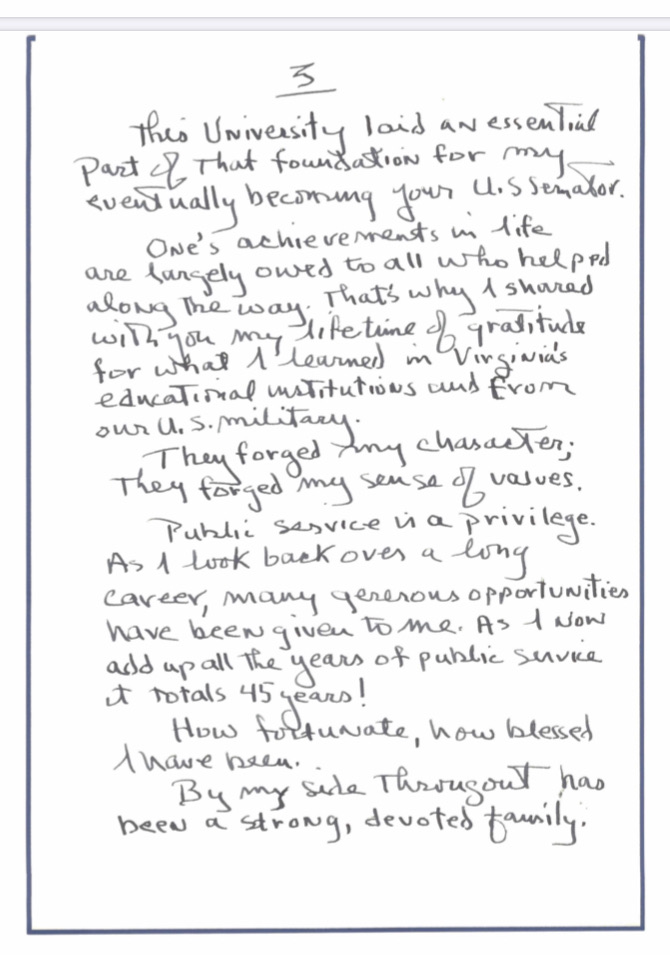 3
This University laid an essential
part of that foundation for my
eventually becoming your U.S Senator.
One's achievements in life
are largely owed to all who helped
along the way. That's why I shared
with you my lifetime of gratitude
for what I learned in Virginia's
educational institutions and from
our U.S. military.
They forged my character;
They forged my sense of values.
Public service is a privilege.
As I look back over a long
career, many generous opportunities
have been given to me. As I now
add up all the years of public service
it totals 45 years!
How fortunate, how blessed
I have been.
By my side througout has
been a strong, devoted family.